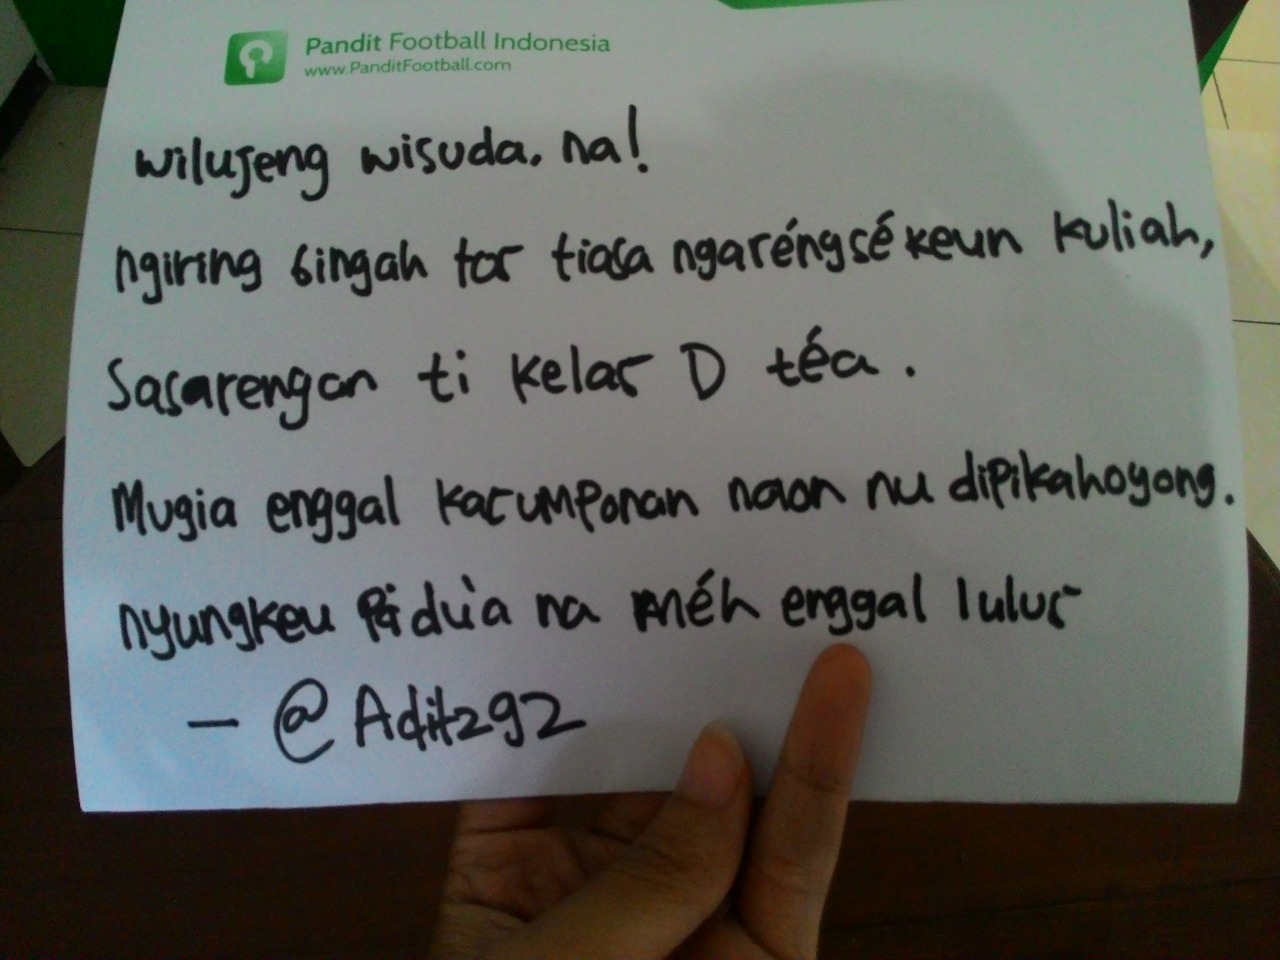 Pandit Football Indonesia
www.PanditFootball.com
wilujeng wisuda, na!
ngiring bingah tos tiasa ngaréngsékeun kuliah,
Sasarengan ti kelas D téa.
Mugia enggal kacumponan naon nu dipikahoyong.
nyungkeu pi du'a na méh enggal lulus
— @Aditz92